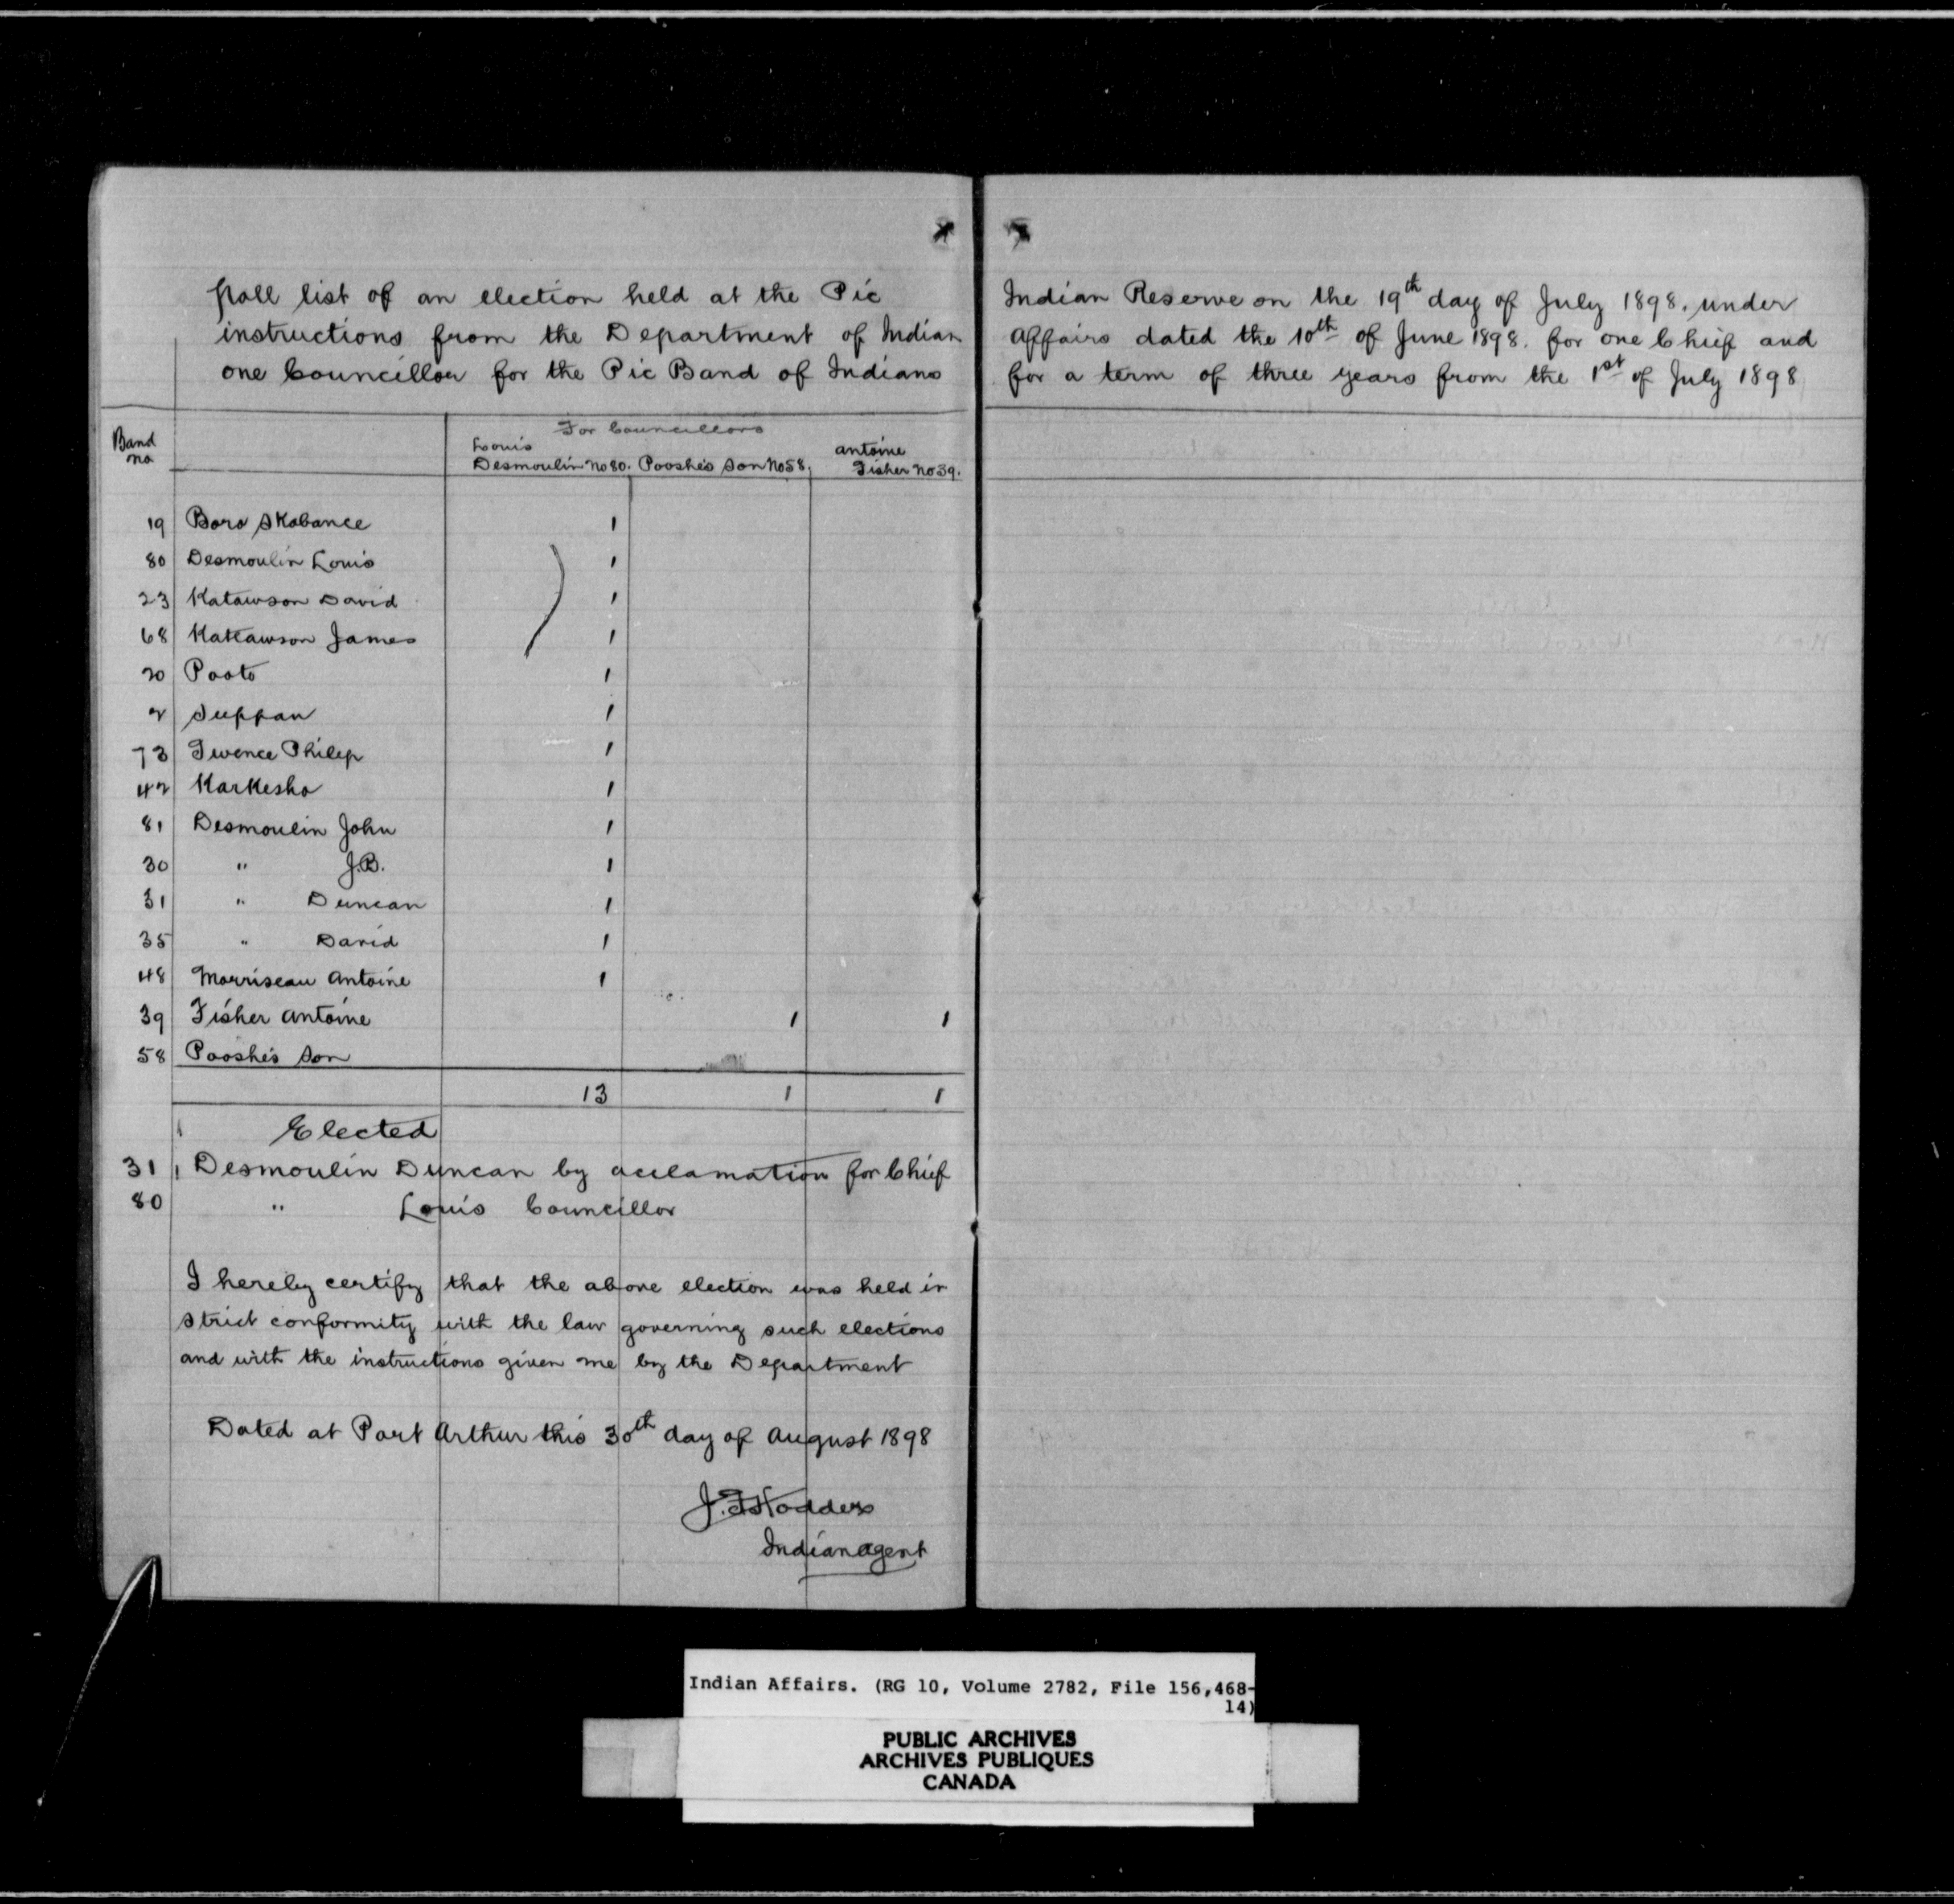 Poll list of an election held at the Pic Indian Reserve on the 19th day of July 1898. under
instructions from the Department of Indian Affairs dated the 10th of June 1898. for one Chief and
one Councillor for the Pic Band of Indians for a term of three years from the 1st of July 1898
For Councillors
Band no
Louis Desmoulin No 80. Pooshe's Son No 58. Antoine Fisher No 39.
19 Boro Skobance 1
80 Desmoulin Louis 1
23 Katawson David 1
68 Katawson James 1
20 Pooto 1
2 Suppan 1
73 Twence Philip 1
42 Karkesho 1
81 Desmoulin John 1
30 " J.B. 1
31 " Duncan 1
35 " David 1
48 Morriseau Antoine 1
39 Fisher Antoine 1 1
58 Pooshe's Son
13 1 1
Elected
31 Desmoulin Duncan by acclamation for Chief
80 " Louis Councillor
I hereby certify that the above election was held in
strict conformity with the law governing such elections
and with the instructions given me by the Department
Dated at Port Arthur this 30th day of August 1898
J.F. Hodder
Indian Agent
Indian Affairs. (RG 10, Volume 2782, File 156,468-
14)
PUBLIC ARCHIVES
ARCHIVES PUBLIQUES
CANADA